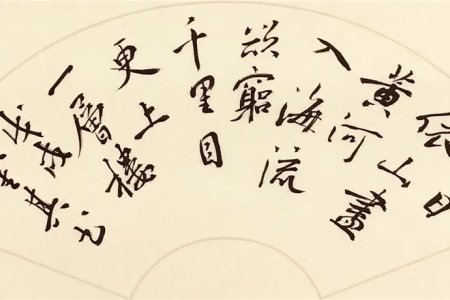 日
依
山盡
黃河
入海流
欲窮
千里目
更上
一層樓